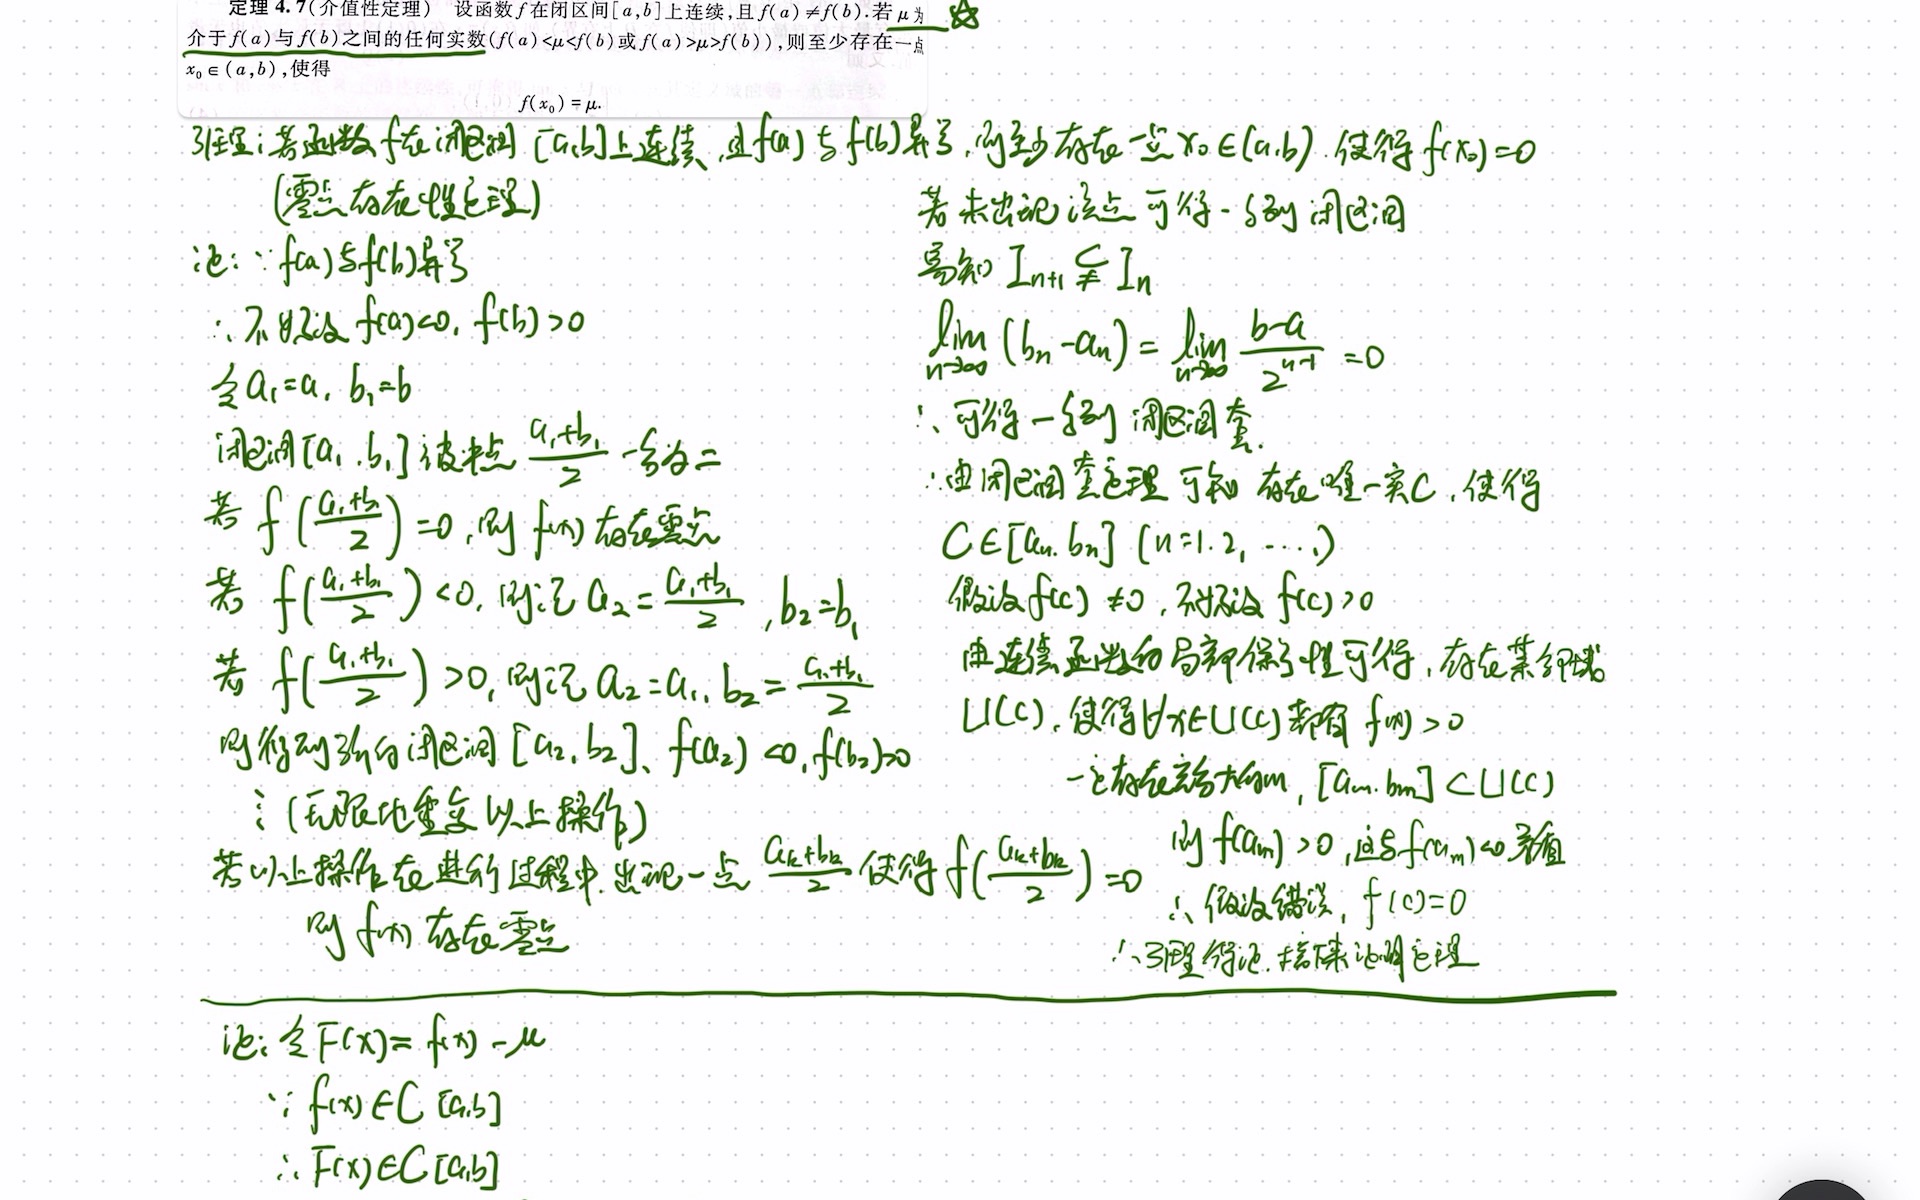 定理 4.7(介值性定理) 设函数 f 在闭区间[a,b]上连续,且 f(a)≠f(b).若 μ 为
介于 f(a)与 f(b)之间的任何实数(f(a)<μ<f(b)或 f(a)>μ>f(b)),则至少存在一点
x₀∈(a,b),使得
f(x₀)=μ.
引理:若函数f在闭区间[a,b]上连续,且f(a)与f(b)异号,则至少存在一点x₀∈(a,b).使得f(x₀)=0
(零点存在性定理)
证:∵f(a)与f(b)异号
∴不妨设f(a)<0, f(b)>0
令a₁=a, b₁=b
闭区间[a₁,b₁]被中点(a₁+b₁)/2一分为二
若f((a₁+b₁)/2)=0,则f(x)存在零点
若f((a₁+b₁)/2)<0,则记a₂=(a₁+b₁)/2,b₂=b₁
若f((a₁+b₁)/2)>0,则记a₂=a₁,b₂=(a₁+b₁)/2
则得到新的闭区间[a₂,b₂]、f(a₂)<0,f(b₂)>0
⋮(无限地重复以上操作)
若以上操作在进行过程中,出现一点(aₖ+bₖ)/2使得f((aₖ+bₖ)/2)=0
则f(x)存在零点
若未出现该点可得一系列闭区间
易知Iₙ₊₁⊊Iₙ
lim n→∞ (bₙ-aₙ)=lim n→∞ (b-a)/2ⁿ⁻¹=0
∴可得一系列闭区间套.
∴由闭区间套定理可知存在唯一实C,使得
C∈[aₙ,bₙ](n=1.2,…,)
假设f(c)≠0,不妨设f(c)>0
由连续函数的局部保号性可得,存在某邻域
U(c),使得∀x∈U(c)都有f(x)>0
一定存在充分大的m,[aₘ,bₘ]⊂U(c)
则f(aₘ)>0,这与f(aₘ)<0矛盾
∴假设错误,f(c)=0
∴引理得证.接下来证明定理
证:令F(x)=f(x)-μ
∵f(x)∈C[a,b]
∴F(x)∈C[a,b]